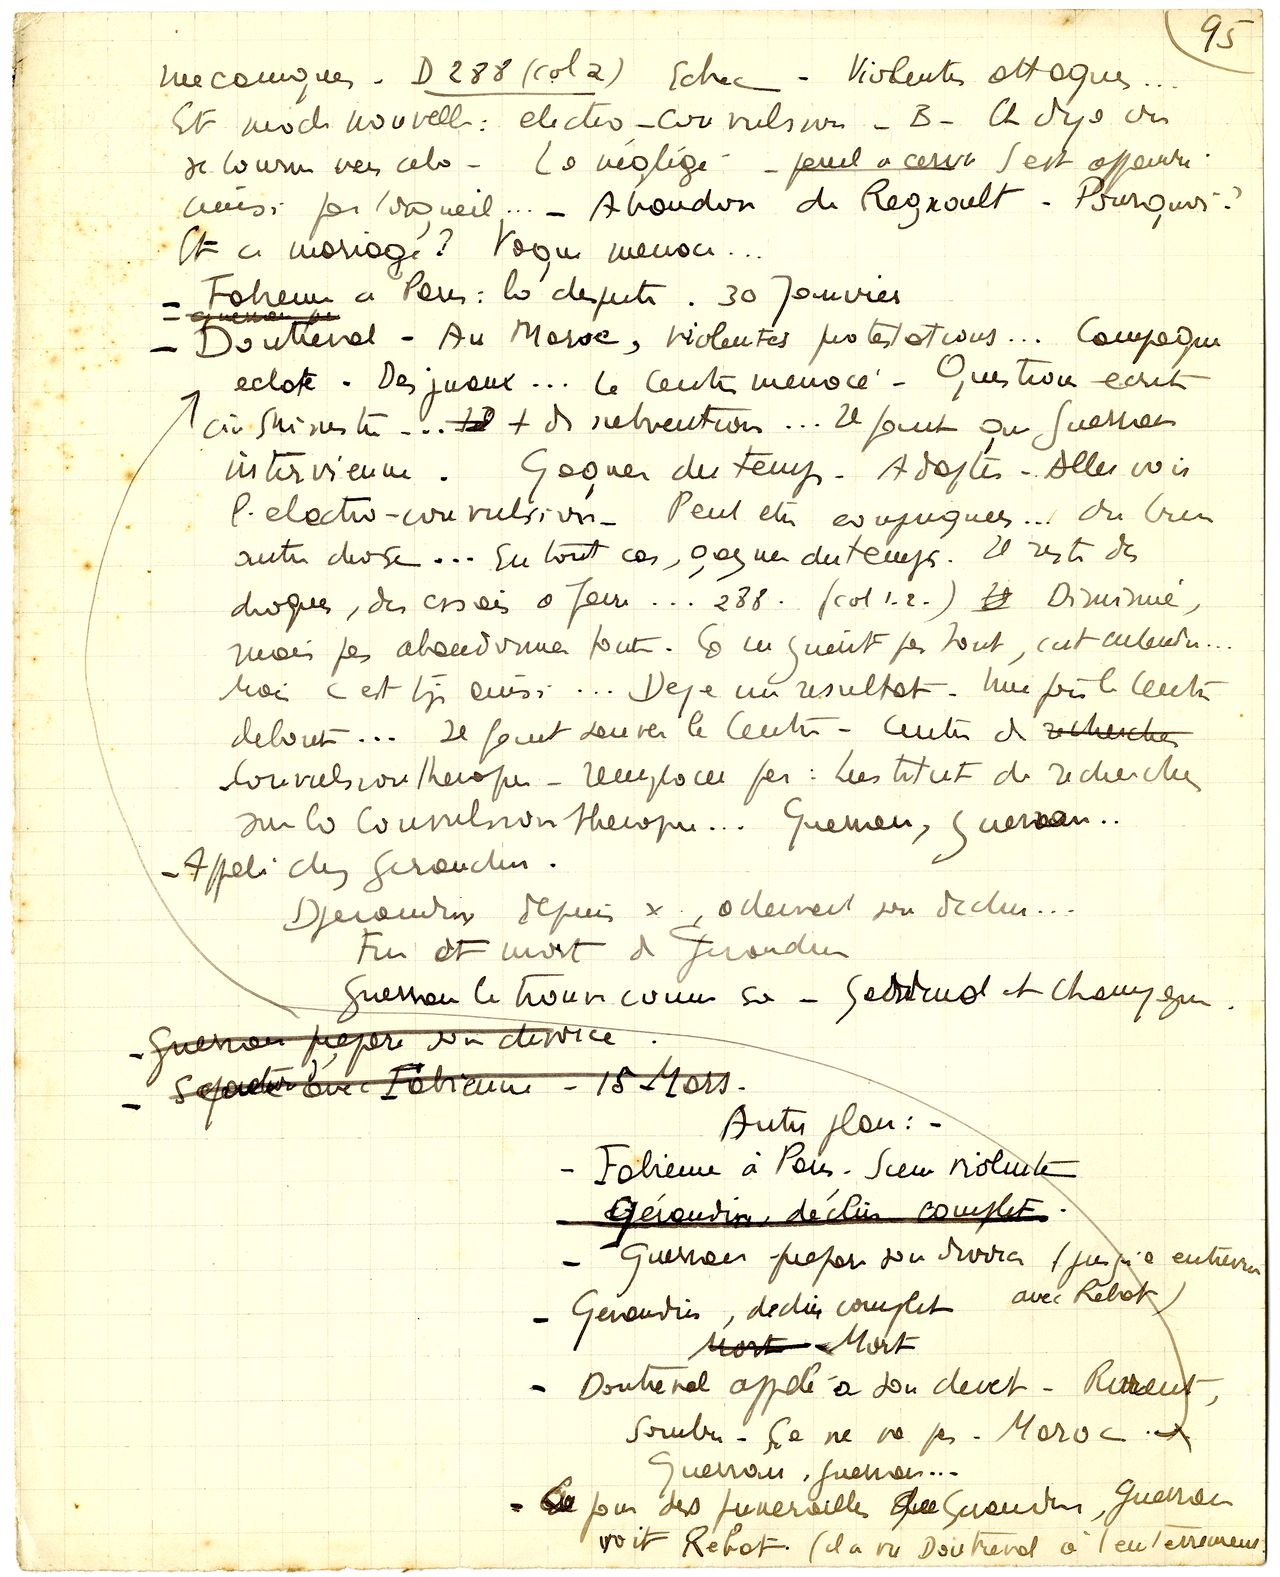 95
mecaniques - D 288 (col 2) Echec - Violentes attaques...
Et mode nouvelle : electro-convulsion - B - Ch deja on
se tourne vers cela - Le néglige - seul a cause s'est
ainsi par l'orgueil... - Abandon de Regnoult - Pourquoi ?
Et ce mariage ? Vague menace...
- Fabienne a Paris : la dispute . 30 Janvier
- Doutreval - Au Maroc, violentes protestations... Campagne
eclate - Des jnaux... Le Centre menacé - Question ecrite
au Ministre -... + de subventions... Il faut que Guerran
intervienne . Gagner du temps - Adopter - Aller vers
l'electro-convulsion - Peut etre conjuguer... ou bien
autre chose... En tout cas, gagner du temps. Il reste des
drogues, des essais a faire... 288. (col 1.2.) Diminué,
mais pas abandonner tout. Ca ne guerit pas tout, c'est entendu...
Mais c'est tjs ainsi... Deja un resultat - Une fois le Centre
debout... Il faut sauver le Centre - Centre de recherches
convulsionthérapie - remplacer par : Institut de recherches
sur la Convulsionthérapie... Guerran, Guerran..
- Appelé chez Géraudin .
Géraudin depuis x , achevait son declin...
Fin et mort de Géraudin
Guerran le trouve comme ça - et Champagne .
- Guerran prépare son divorce .
- avec Fabienne - 15 Mars.
Autre plan : -
- Fabienne à Paris - Scene violente
- Géraudin, déclin complet .
- Guerran prepare son divorce (jusqu'a entrevue
avec Rebot)
- Géraudin, declin complet
Mort - Mort
- Doutreval appelé a son chevet - Revient,
Sombre - Ça ne va pas - Maroc ->
Guerran, guerran...
- jour des funerailles Géraudin, Guerran
voit Rebot (il a vu Doutreval a l'enterrement